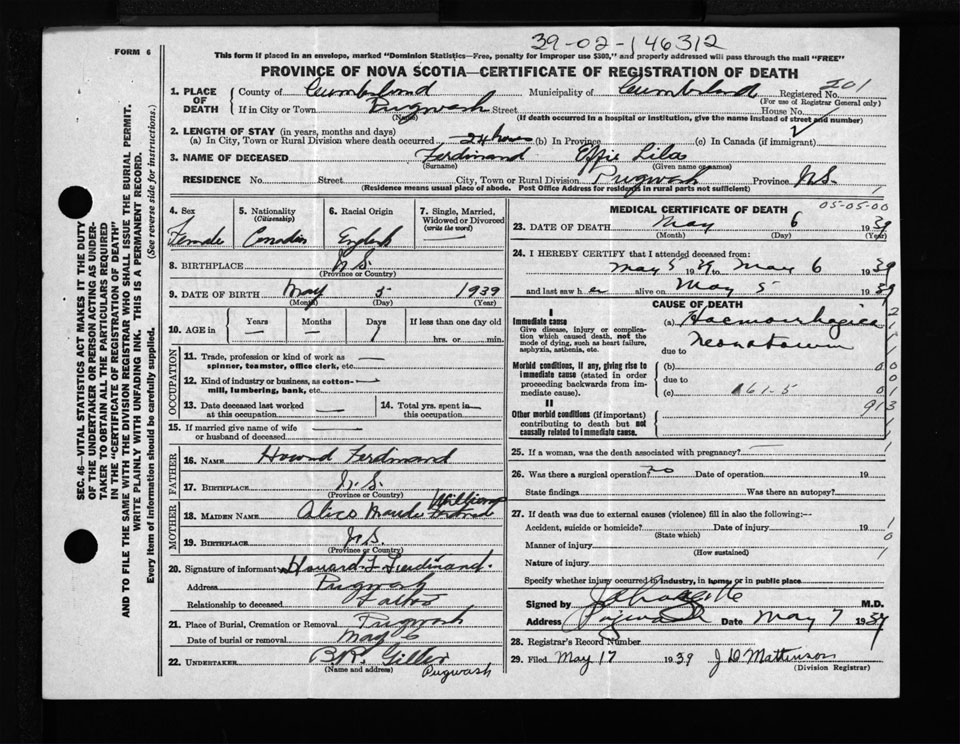 39-02-146312
FORM 6
This form if placed in an envelope, marked "Dominion Statistics—Free, penalty for improper use $300," and properly addressed will pass through the mail "FREE"
PROVINCE OF NOVA SCOTIA—CERTIFICATE OF REGISTRATION OF DEATH
SEC. 46—VITAL STATISTICS ACT MAKES IT THE DUTY
OF THE UNDERTAKER OR PERSON ACTING AS UNDER-
TAKER TO OBTAIN ALL THE PARTICULARS REQUIRED
IN THE "CERTIFICATE OF REGISTRATION OF DEATH"
AND TO FILE THE SAME WITH THE DIVISION REGISTRAR WHO SHALL ISSUE THE BURIAL PERMIT.
WRITE PLAINLY WITH UNFADING INK. THIS IS A PERMANENT RECORD.
Every item of information should be carefully supplied. (See reverse side for instructions.)
1. PLACE OF DEATH County of Cumberland Municipality of Cumberland Registered No. 201
(For use of Registrar General only)
If in City or Town Pugwash Street House No.
(Name) (If death occurred in a hospital or institution, give the name instead of street and number)
2. LENGTH OF STAY (in years, months and days)
(a) In City, Town or Rural Division where death occurred 24 hours (b) In Province (c) In Canada (if immigrant)
3. NAME OF DECEASED Ferdinand Effie Lila
(Surname) (Given name or names)
RESIDENCE No. Street City, Town or Rural Division Pugwash Province N.S.
(Residence means usual place of abode. Post Office Address for residents in rural parts not sufficient)
4. Sex 5. Nationality 6. Racial Origin 7. Single, Married,
(Citizenship) Widowed or Divorced
(write the word)
Female Canadian English —
8. BIRTHPLACE N.S.
(Province or Country)
9. DATE OF BIRTH May 5 1939
(Month) (Day) (Year)
10. AGE in Years Months Days If less than one day old
— — 1 hrs. or min.
OCCUPATION
11. Trade, profession or kind of work as —
spinner, teamster, office clerk, etc.
12. Kind of industry or business, as cotton- —
mill, lumbering, bank, etc.
13. Date deceased last worked — 14. Total yrs. spent in —
at this occupation this occupation
15. If married give name of wife
or husband of deceased —
FATHER
16. NAME Howard Ferdinand
17. BIRTHPLACE N.S.
(Province or Country)
MOTHER
18. MAIDEN NAME Alice Maude Williams
19. BIRTHPLACE N.S.
(Province or Country)
20. Signature of informant Howard F. Ferdinand.
Address Pugwash
Relationship to deceased Father
21. Place of Burial, Cremation or Removal Pugwash
Date of burial or removal May 6
22. UNDERTAKER
(Name and address) Pugwash
05-05-00
MEDICAL CERTIFICATE OF DEATH
23. DATE OF DEATH May 6 1939
(Month) (Day) (Year)
24. I HEREBY CERTIFY that I attended deceased from:
May 5 1939 to May 6 1939
and last saw her alive on May 5 1939
CAUSE OF DEATH
I
Immediate cause (a) Haemorrhagica
Give disease, injury or complica-
tion which caused death, not the
mode of dying, such as heart failure,
asphyxia, asthenia, etc.
Neonatorum
due to
Morbid conditions, if any, giving rise to (b)
immediate cause (stated in order due to
proceeding backwards from im-
mediate cause). (c) 161-5
II
Other morbid conditions (if important)
contributing to death but not
causally related to immediate cause.
913
25. If a woman, was the death associated with pregnancy?
26. Was there a surgical operation? no Date of operation 19
State findings Was there an autopsy?
27. If death was due to external causes (violence) fill in also the following:—
Accident, suicide or homicide? Date of injury 19
(State which)
Manner of injury
(How sustained)
Nature of injury
Specify whether injury occurred in industry, in home, or in public place
Signed by M.D.
Address Pugwash Date May 7 1939
28. Registrar's Record Number
29. Filed May 17 1939
(Division Registrar)